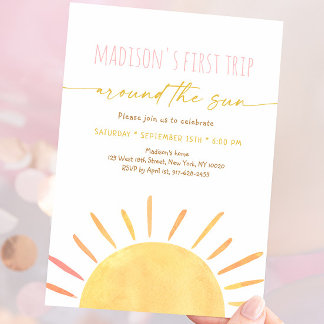 MADISON'S FIRST TRIP
around the sun
Please join us to celebrate
SATURDAY * SEPTEMBER 15TH * 6:00 PM
Madison's home
123 West 18th Street, New York, NY 10020
RSVP by April 1st, 917-628-2453